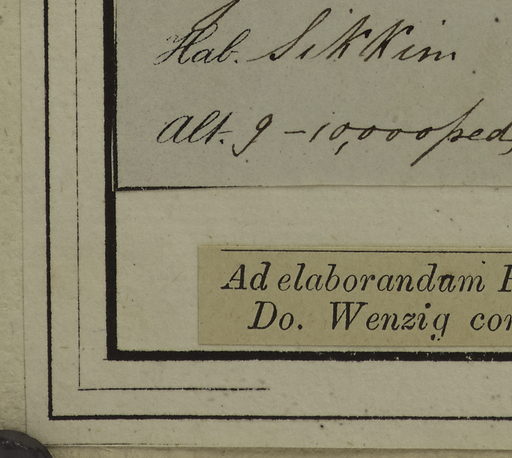 Hab. Sikkim
Alt. 9-10,000 ped
Ad elaborandum
Do. Wenzig